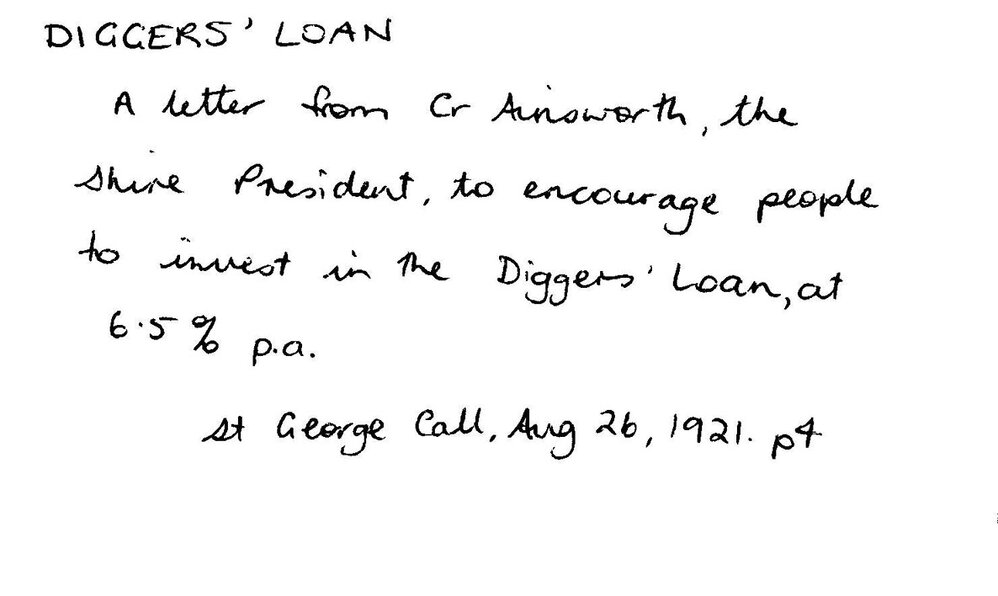 DIGGERS' LOAN
A letter from Cr Ainsworth, the
Shire President, to encourage people
to invest in the Diggers' Loan, at
6.5% p.a.
St George Call, Aug 26, 1921. p4